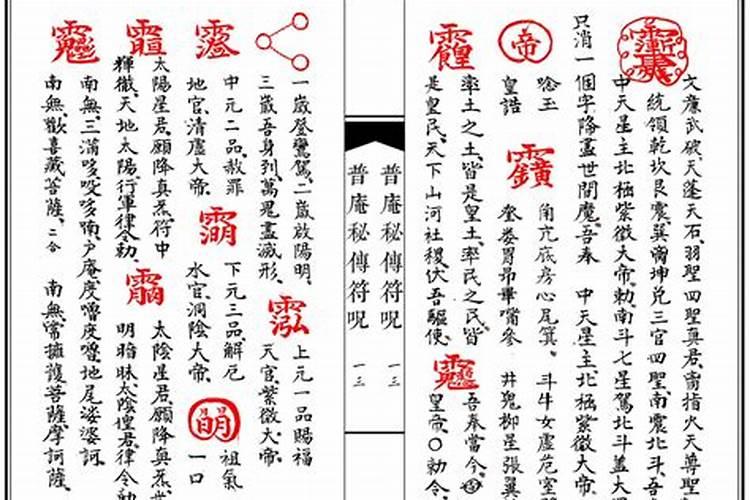 文廉武破天蓬天
統領乾坎艮震巽离坤兌三官四聖南震北斗吾
中天星主北極紫微大帝勅南斗七星駕北斗蓋大
只消一個字降盡世間魔吾奉 中天星主北極紫微大帝
唸玉
皇誥
帝
角亢氐房心尾箕 斗牛女虛危室
奎婁胃昴畢觜參 井鬼柳星張翼
率土之土皆是皇土率民之民皆
是皇民天下山河社稷伏吾驅使
吾奉當今
皇帝〇勅令
普庵秘傳符呪 一三
普庵秘傳符呪 一三
一歲登鸞駕二歲放陽明
三歲吾身到萬鬼盡滅形
上元一品賜福
天官紫微大帝
中元二品赦罪
地官清虛大帝
下元三品解厄
水官洞陰大帝
祖氣
一口
太陽星君願降真炁符中
輝徹天地太陽行軍律令勅
太陰星君願降真炁
明暗昧太陰皇君律令
南無三滿哆
南無歡喜藏菩薩二合 南無常擁護菩薩摩訶薩